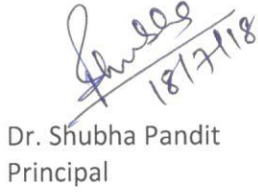 18/7/18
Dr. Shubha Pandit
Principal